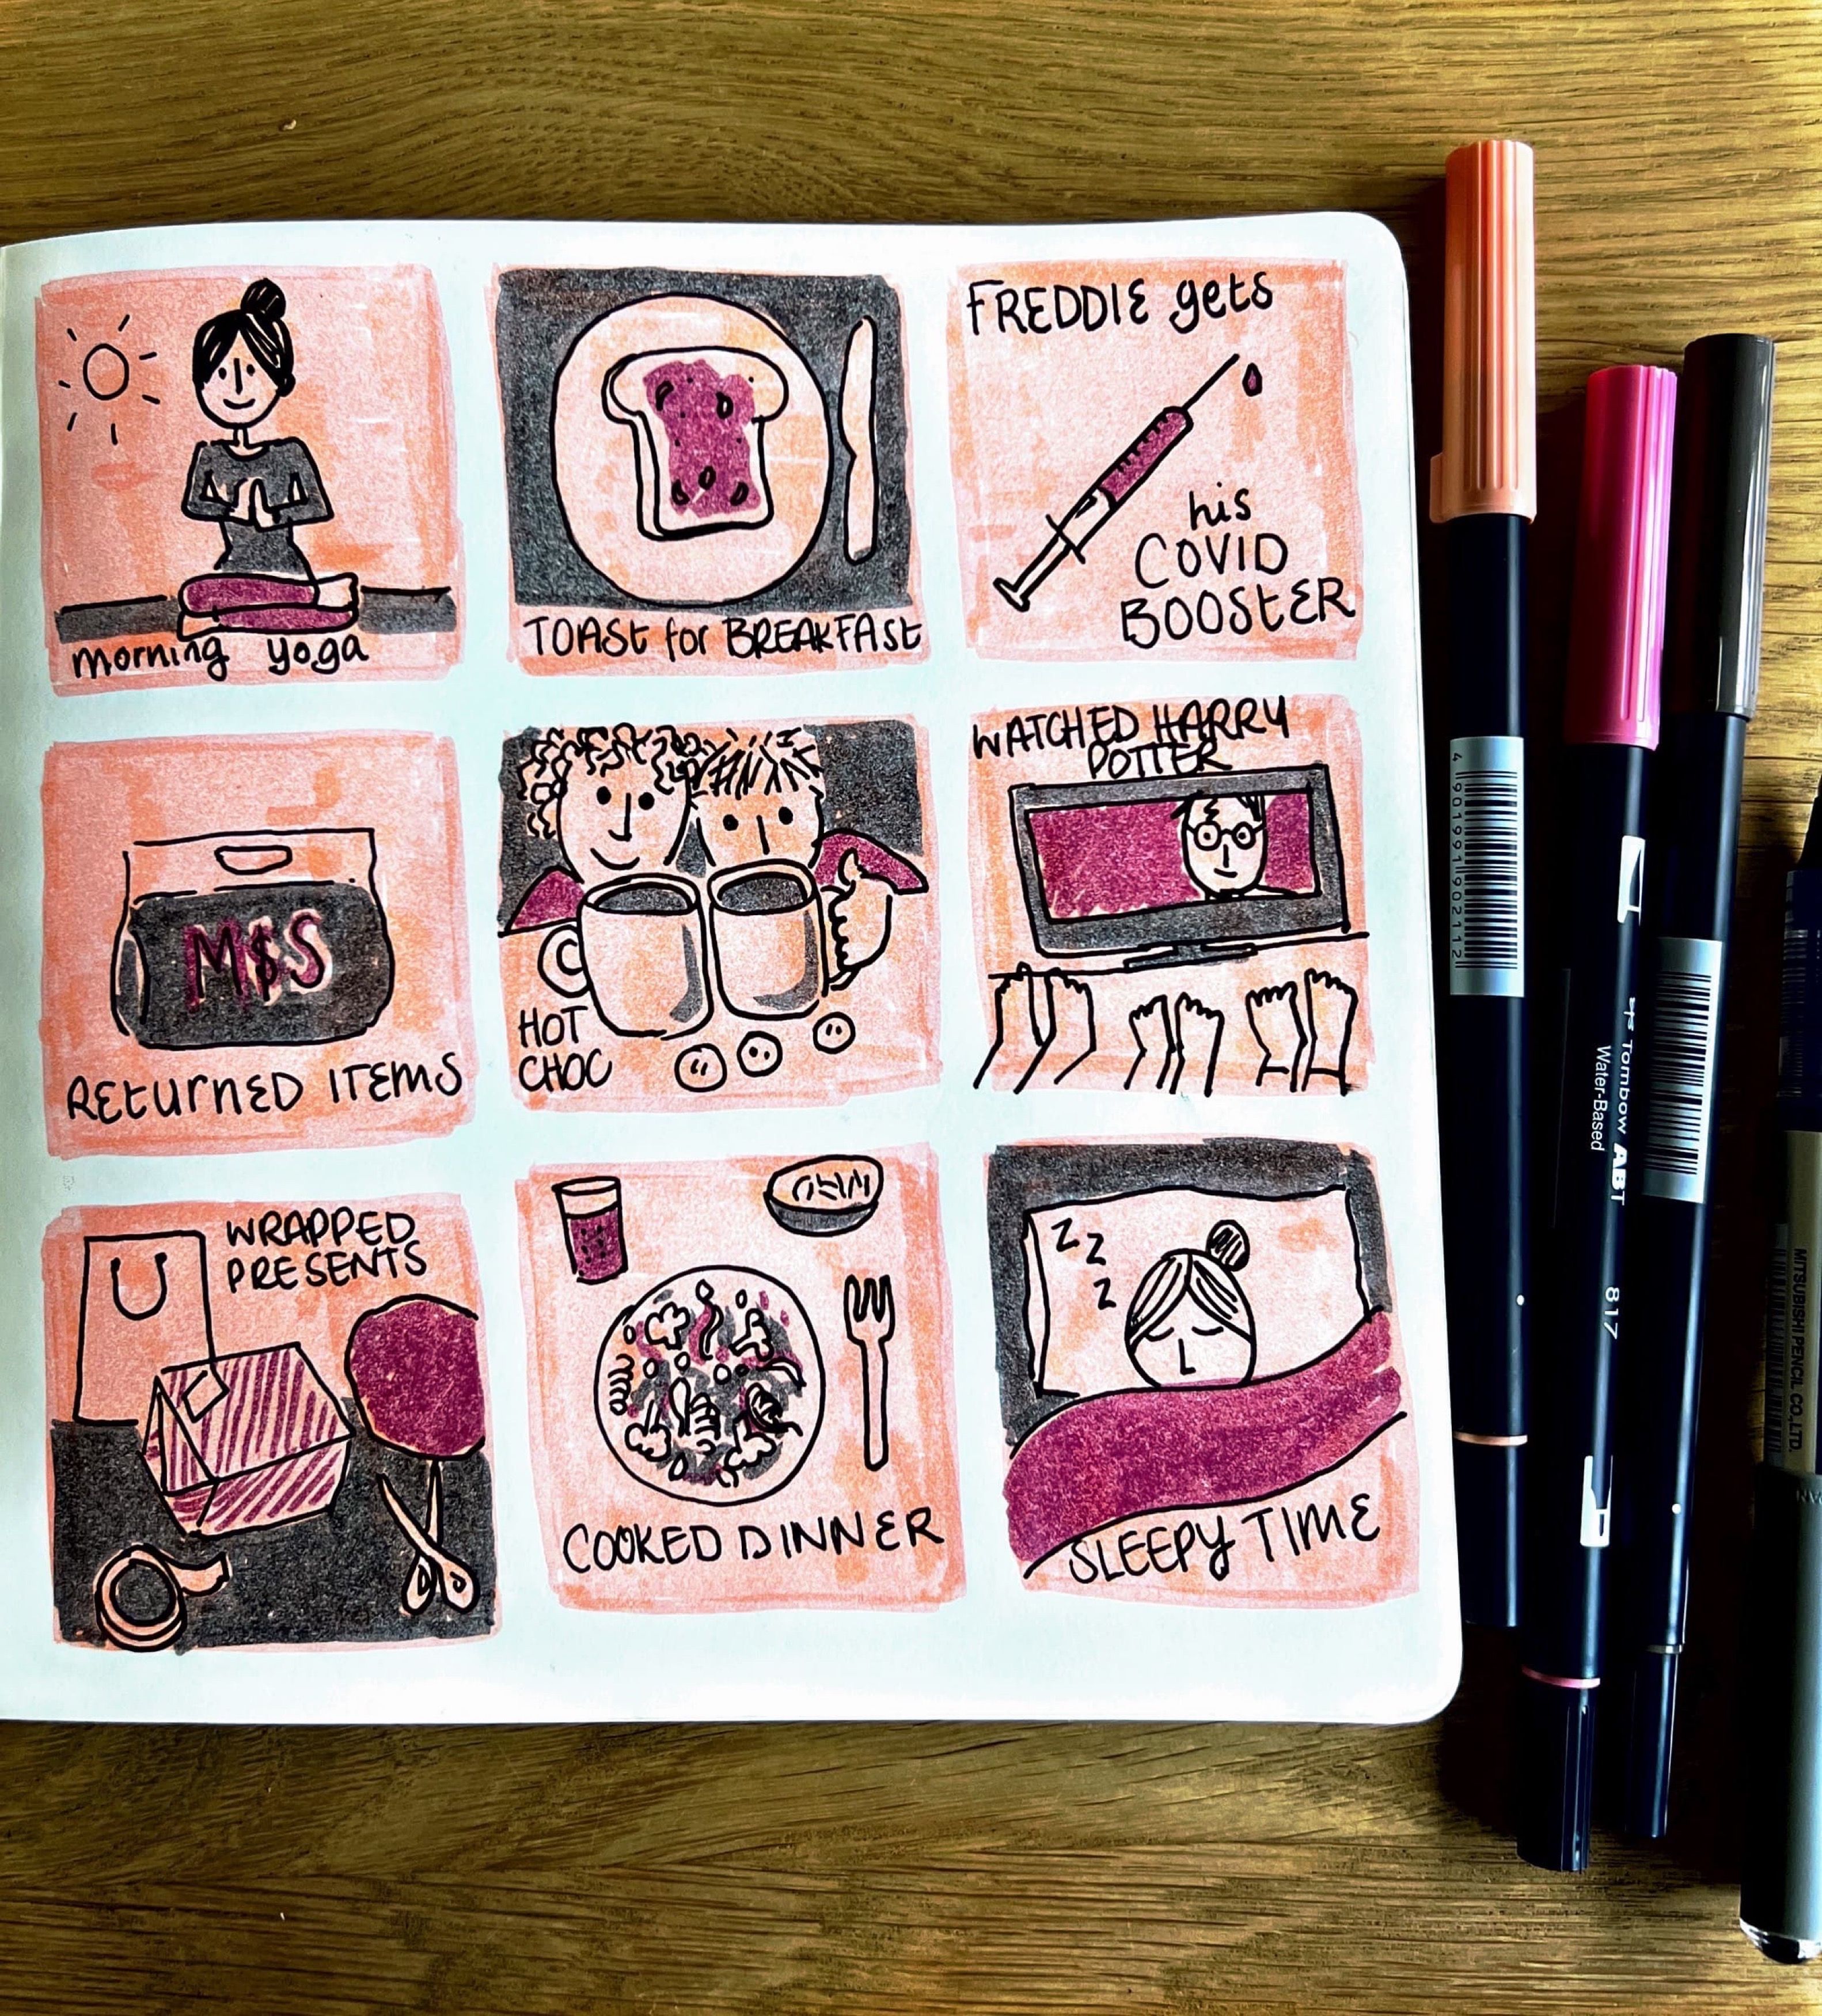 morning yoga
TOASt for BREAKFASt
FREDDIE gets
his
COVID
BOOStER
M$S
REturnED ITEMS
HOT
CHOC
WATCHED HARRY
POTTER
WRAPPED
PRESENTS
COOKED DINNER
Z
Z
Z
SLEEPY TIME
4 901991 902112
Tombow ABT
Water-Based
817
MITSUBISHI PENCIL CO.,LTD.